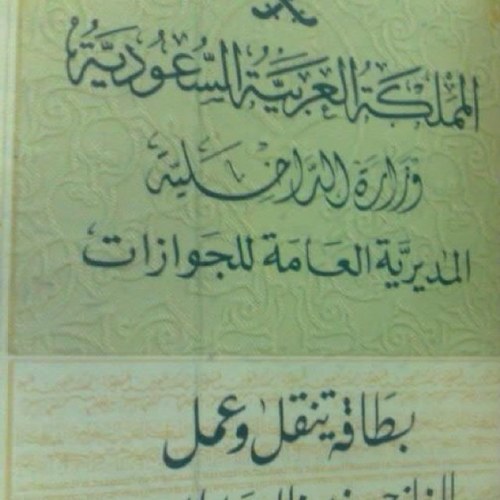 المملكة العربية السعودية
وزارة الداخلية
المديرية العامة للجوازات
بطاقة تنقل وعمل